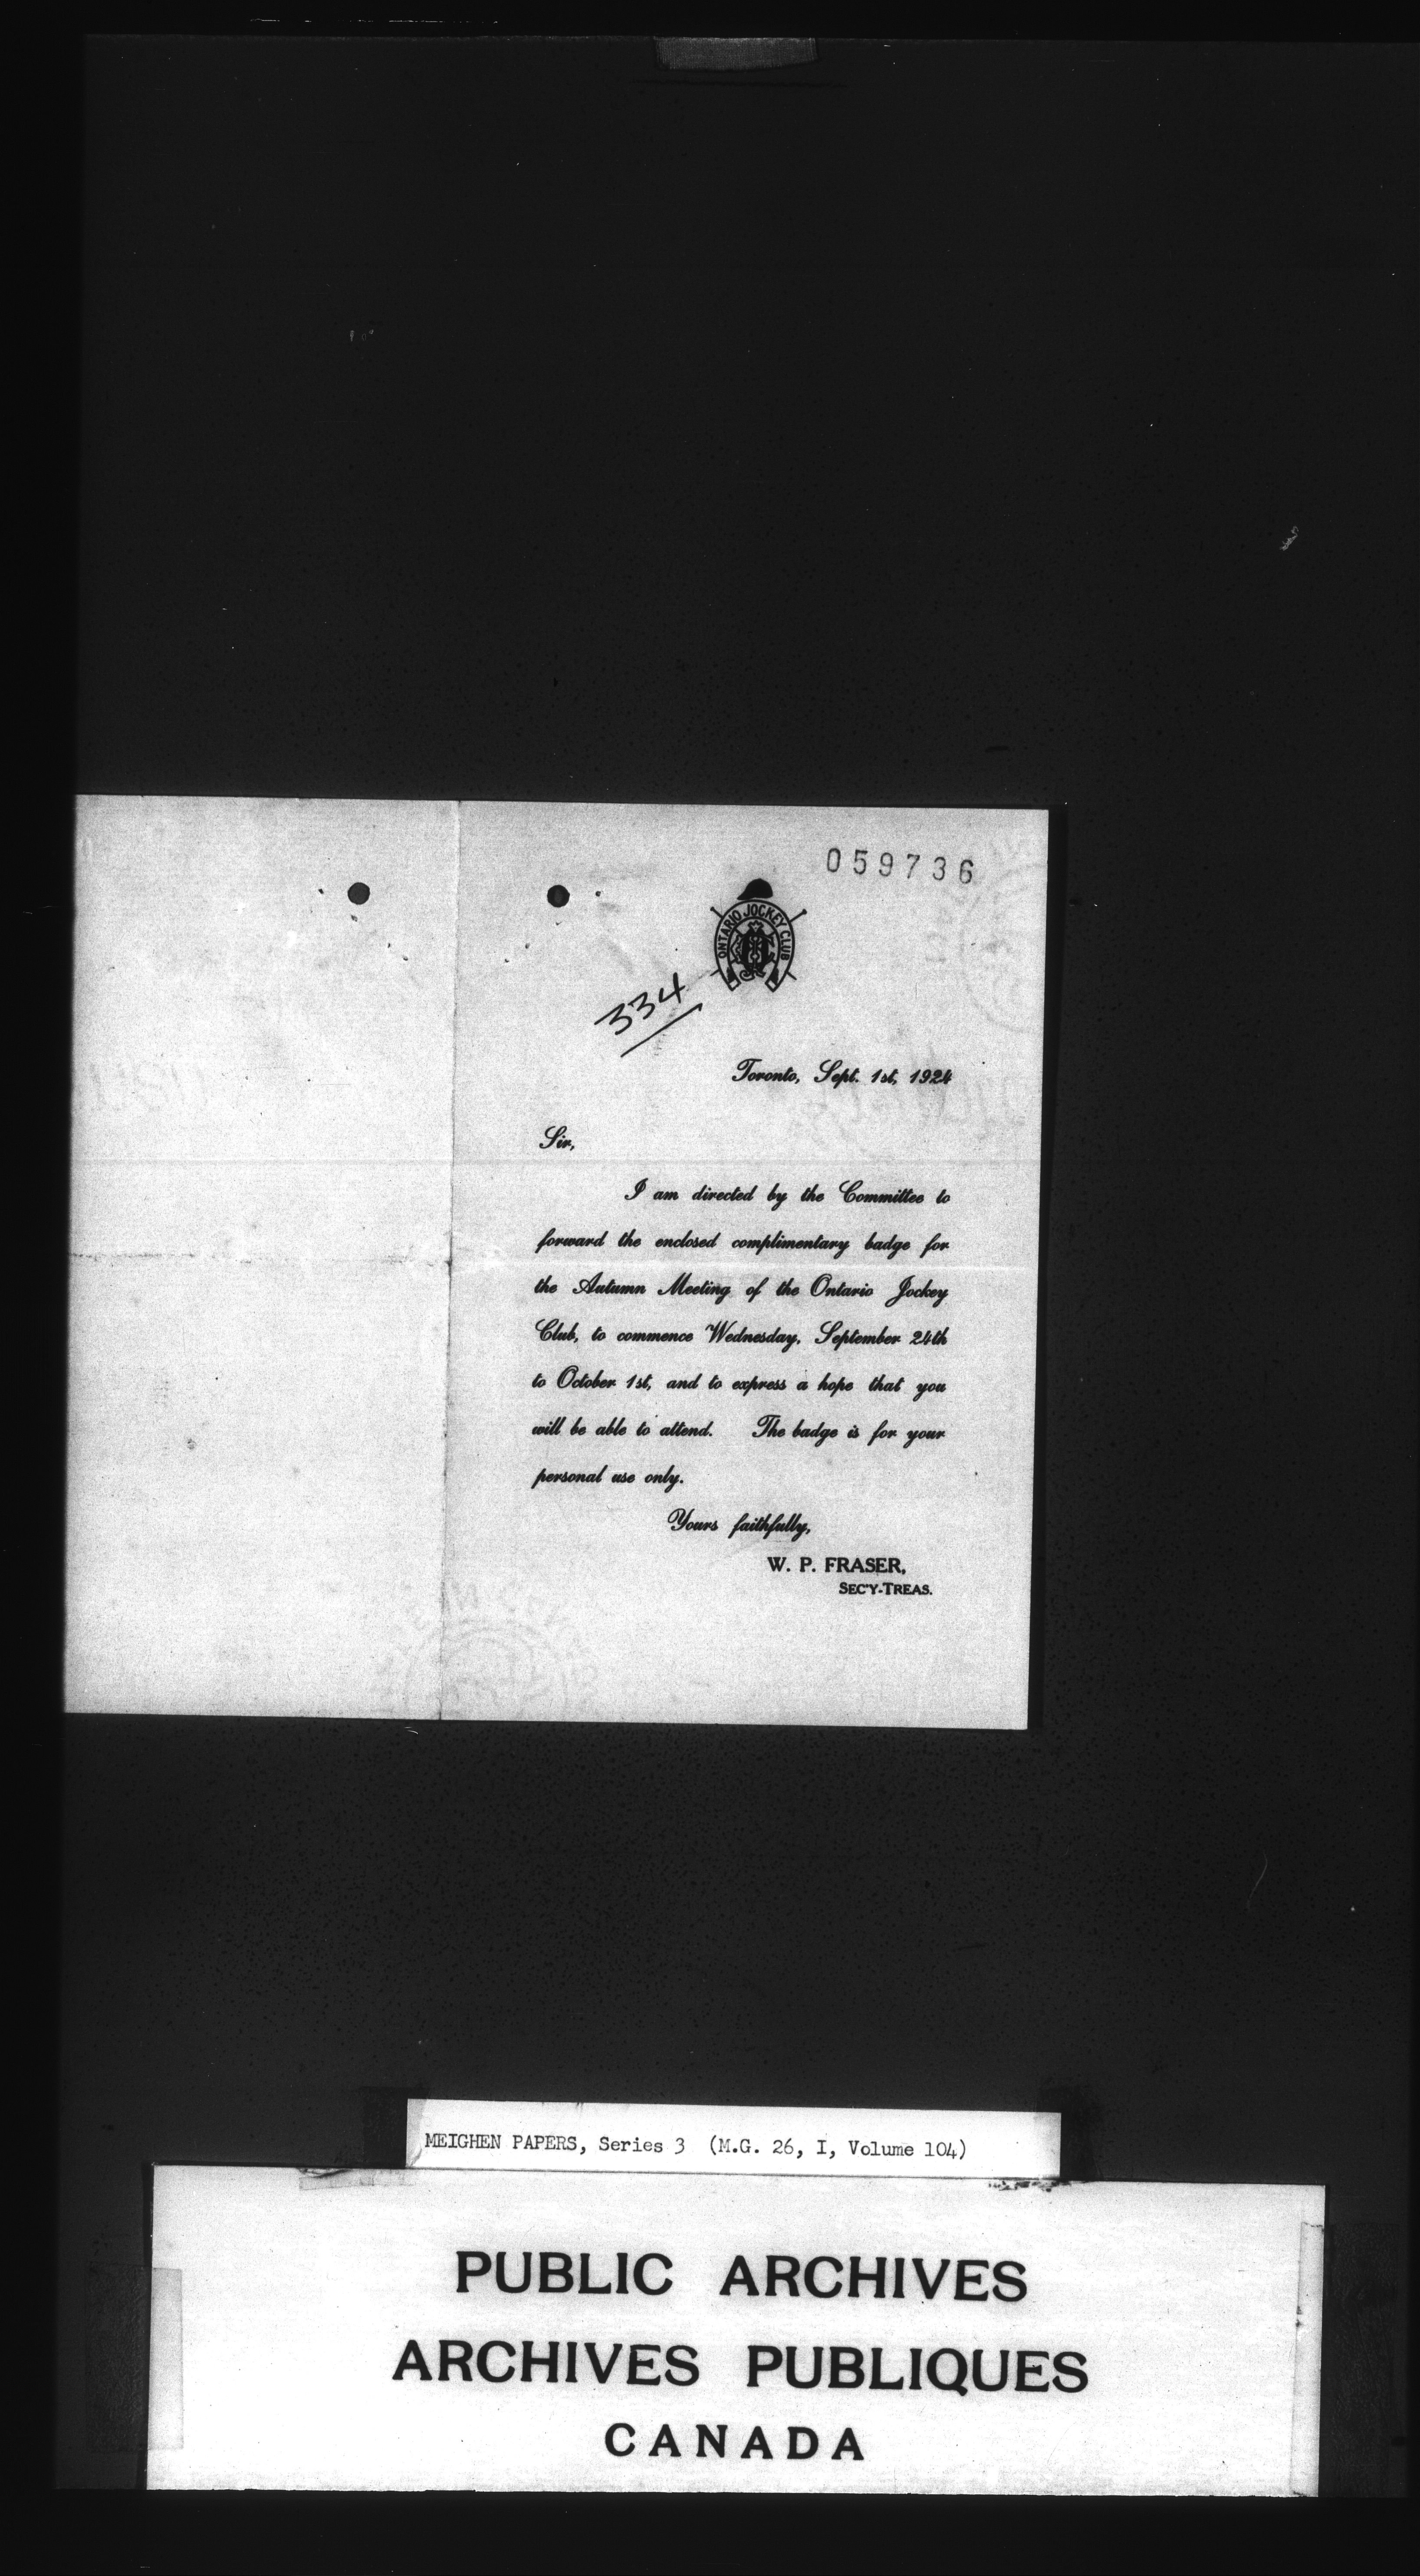 059736
ONTARIO JOCKEY CLUB
334
Toronto, Sept. 1st, 1924
Sir,
I am directed by the Committee to
forward the enclosed complimentary badge for
the Autumn Meeting of the Ontario Jockey
Club, to commence Wednesday, September 24th
to October 1st, and to express a hope that you
will be able to attend. The badge is for your
personal use only.
Yours faithfully,
W. P. FRASER,
SEC'Y-TREAS.
MEIGHEN PAPERS, Series 3 (M.G. 26, I, Volume 104)
PUBLIC ARCHIVES
ARCHIVES PUBLIQUES
CANADA